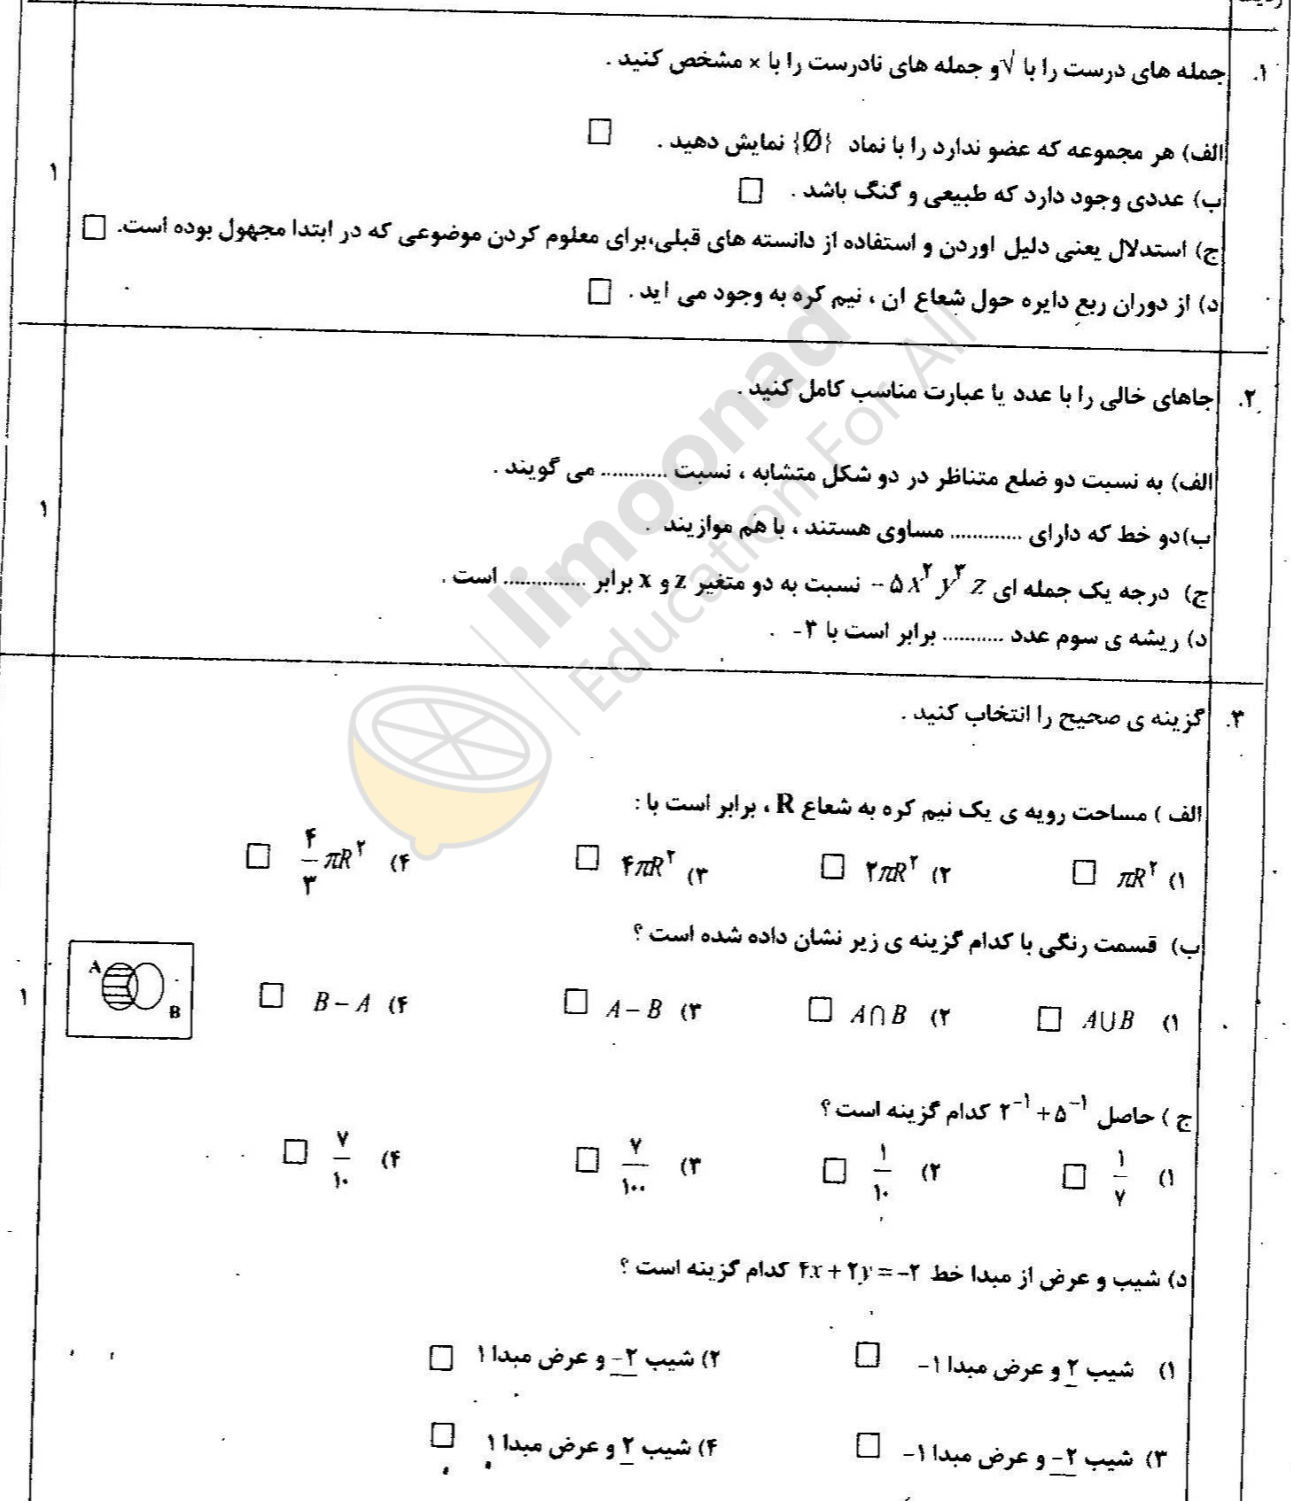 ۱. جمله های درست را با √ و جمله های نادرست را با × مشخص کنید .
الف) هر مجموعه که عضو ندارد را با نماد {Ø} نمایش دهید . □
ب) عددی وجود دارد که طبیعی و گنگ باشد . □
۱
ج) استدلال یعنی دلیل اوردن و استفاده از دانسته های قبلی،برای معلوم کردن موضوعی که در ابتدا مجهول بوده است. □
د) از دوران ربع دایره حول شعاع ان ، نیم کره به وجود می اید . □
۲. جاهای خالی را با عدد یا عبارت مناسب کامل کنید .
الف) به نسبت دو ضلع متناظر در دو شکل متشابه ، نسبت ............ می گویند .
۱
ب)دو خط که دارای ............. مساوی هستند ، با هم موازیند .
ج) درجه یک جمله ای -۵x^۲ y^۳ z نسبت به دو متغیر z و x برابر ............... است .
د) ریشه ی سوم عدد ........... برابر است با ۳- .
۳. گزینه ی صحیح را انتخاب کنید .
الف ) مساحت رویه ی یک نیم کره به شعاع R ، برابر است با :
۱) πR^۲ □ ۲) ۲πR^۲ □ ۳) ۴πR^۲ □ ۴) ۴/۳ πR^۲ □
ب) قسمت رنگی با کدام گزینه ی زیر نشان داده شده است ؟
۱) A∪B □ ۲) A∩B □ ۳) A−B □ ۴) B−A □
A
B
۱
ج ) حاصل ۲^−۱ + ۵^−۱ کدام گزینه است ؟
۱) ۱/۷ □ ۲) ۱/۱۰ □ ۳) ۷/۱۰۰ □ ۴) ۷/۱۰ □
د) شیب و عرض از مبدا خط ۴x + ۲y = −۲ کدام گزینه است ؟
۱) شیب ۲ و عرض مبدا ۱- □ ۲) شیب ۲- و عرض مبدا ۱ □
۳) شیب ۲- و عرض مبدا ۱- □ ۴) شیب ۲ و عرض مبدا ۱ □
limoonad
Education For All